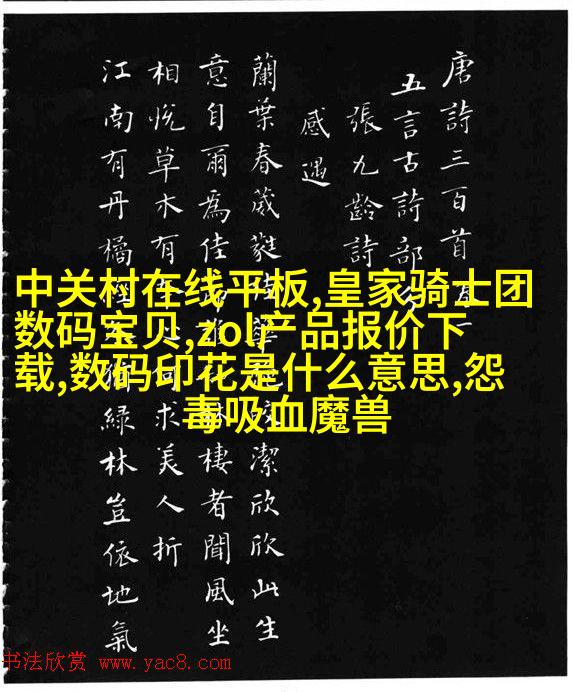 唐詩三百首
五言古詩部
張九齡詩
感遇
蘭葉春葳蕤 潔欣欣此生
意自爾為佳 棲者聞風坐
相悅草木有 求美人折
江南有丹橘 綠林豈依地氣
中关村在线平板,皇家骑士团
数码宝贝,zol产品报价下
载,数码印花是什么意思,怨
毒吸血魔兽
书法欣赏 www.yac8.com